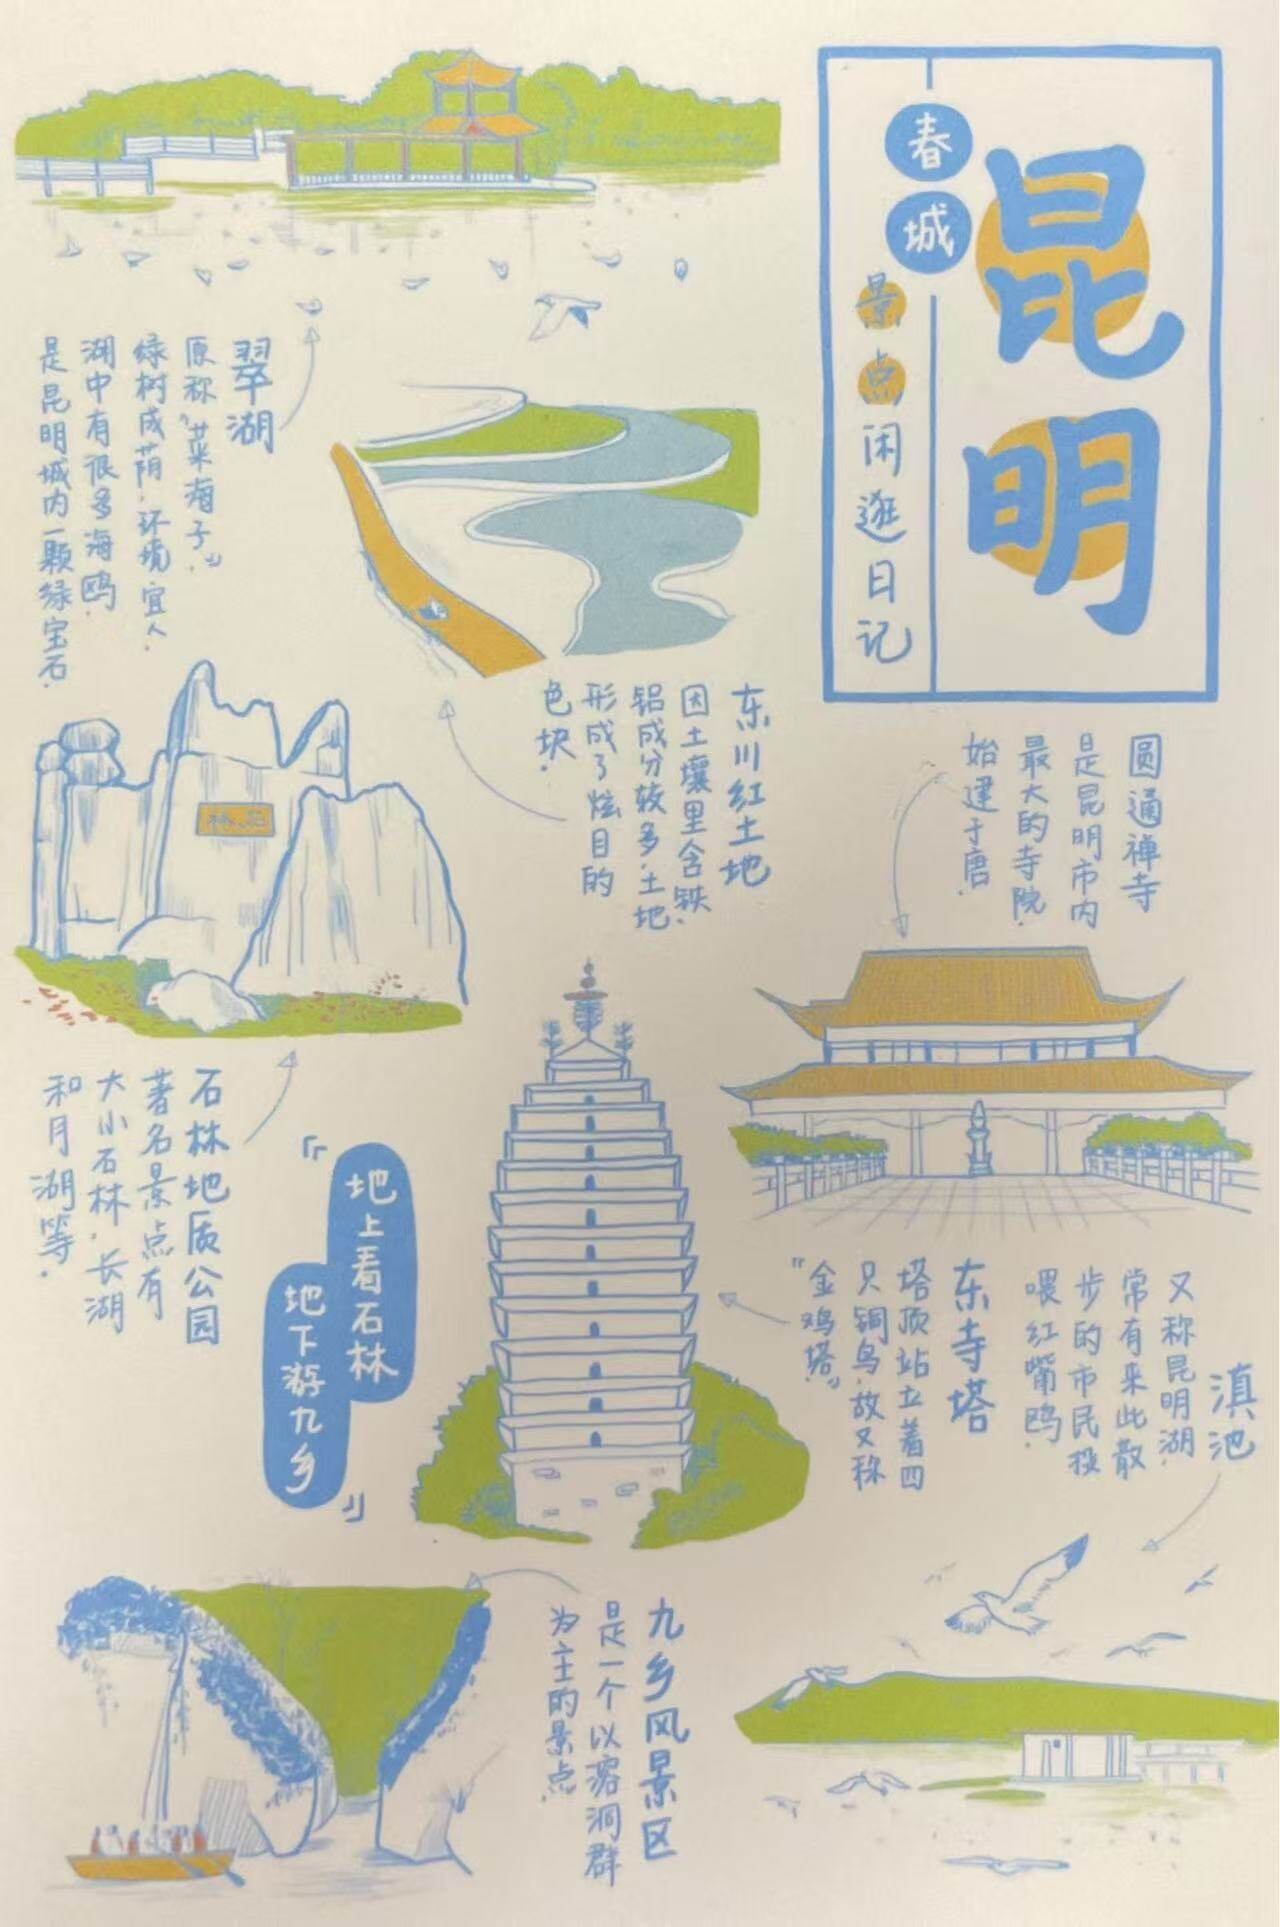 昆明
春城
景点闲逛日记
翠湖
原称“菜海子”，
绿树成荫，环境宜人，
湖中有很多海鸥，
是昆明城内一颗绿宝石.
东川红土地
因土壤里含铁、
铝成分较多，土地
形成了炫目的
色块.
圆通禅寺
是昆明市内
最大的寺院，
始建于唐.
石林
石林地质公园
著名景点有
大小石林，长湖
和月湖等.
「地上看石林
地下游九乡」
东寺塔
塔顶站立着四
只铜鸟，故又称
“金鸡塔”
滇池
又称昆明湖，
常有来此散
步的市民投
喂红嘴鸥.
九乡风景区
是一个以溶洞群
为主的景点.